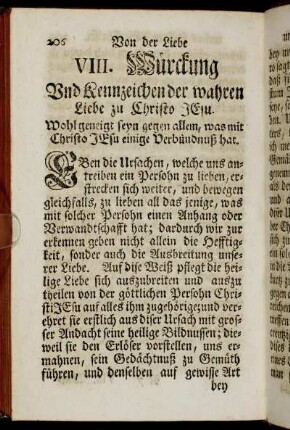 206 Von der Liebe
VIII. Würckung
Und Kennzeichen der wahren
Liebe zu Christo JEsu.
Wohl geneigt seyn gegen allem, was mit
Christo JEsu einige Verbündnuß hat.
EBen die Ursachen, welche uns an-
treiben ein Persohn zu lieben, er-
strecken sich weiter, und bewegen
gleichfalls, zu lieben all das jenige, was
mit solcher Persohn einen Anhang oder
Verwandtschafft hat; dardurch wir zur
erkennen geben nicht allein die Hefftig-
keit, sonder auch die Ausbreitung unse-
rer Liebe. Auf dise Weiß pflegt die hei-
lige Liebe sich auszubreiten und auszu-
theilen von der göttlichen Persohn Chri-
sti JEsu auf alles ihm zugehörige: und ver-
ehret sie erstlich aus diser Ursach mit gros-
ser Andacht seine heilige Bildnussen; die-
weil sie den Erlöser vorstellen, uns er-
mahnen, sein Gedächtnuß zu Gemüth
führen, und denselben auf gewisse Art
bey